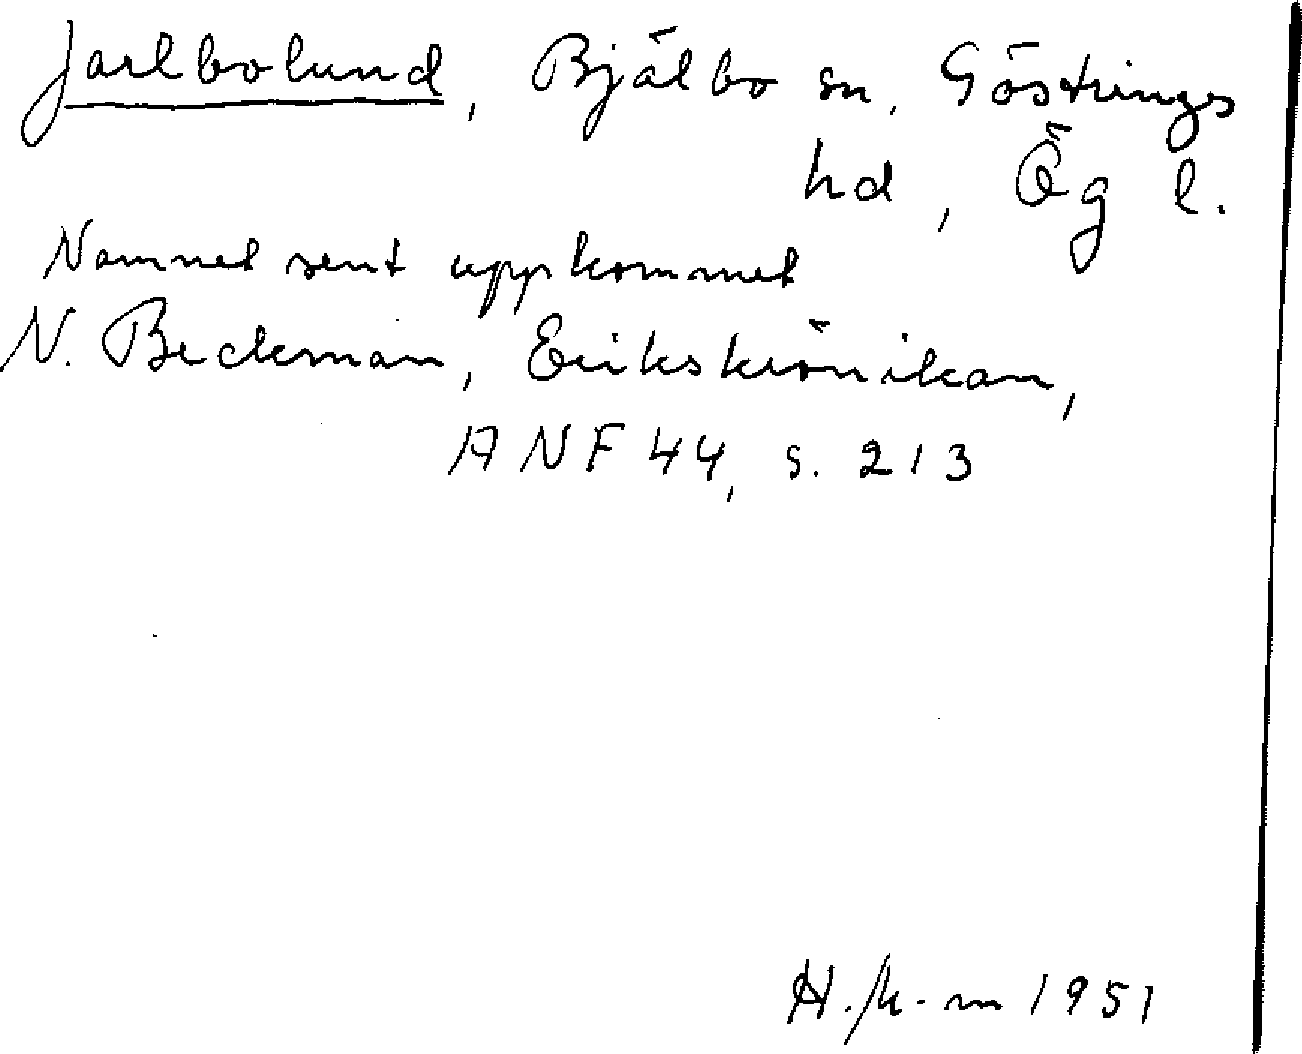 Jarlbolund, Bjälbo sn, Göstrings
hd, Ög l.
Namnet sent uppkommet
N. Beckman, Erikskrönikan,
ANF 44, s. 213
1951